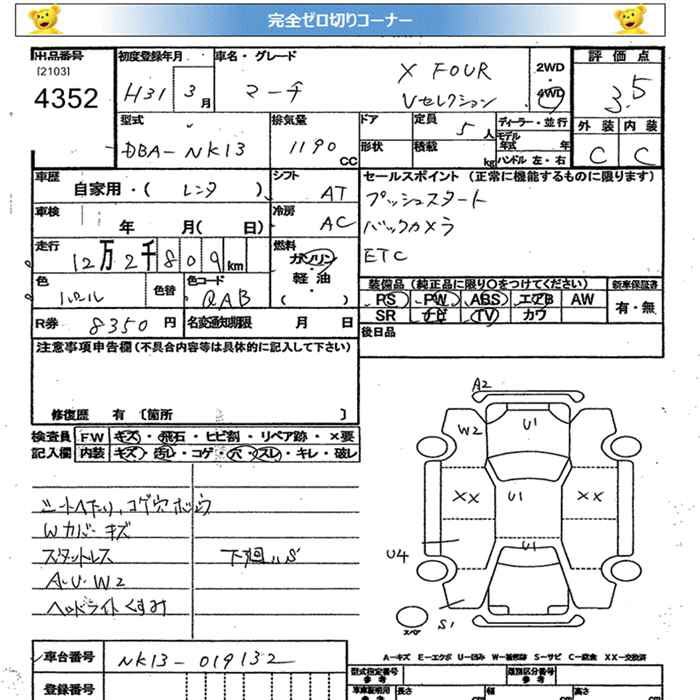 完全ゼロ切りコーナー
出品番号
[2103]
4352
初度登録年月
H31 3月
車名・グレード
マーチ
X FOUR
Vセレクション
2WD
・
4WD
評価点
3.5
外装 内装
C C
型式
DBA-NK13
排気量
1190 CC
ドア
形状
定員 5人
積載 kg
ディーラー・並行
モデル年式 年
ハンドル 左・右
車歴
自家用・( レンタ )
シフト
AT
セールスポイント (正常に機能するものに限ります)
プッシュスタート
バックカメラ
ETC
車検
年 月( 日)
冷房
AC
走行
12万2千809km
燃料
ガソリン・
軽油・
( )
色
色替
色コード
QAB
装備品 (純正品に限り○をつけてください)
PS PW ABS エアB AW
SR ナビ TV カワ
新車保証書
有・無
R券 8350円
名変通知期限 月 日
後日品
注意事項申告欄(不具合内容等は具体的に記入して下さい)
修復歴 有 〔箇所 〕
検査員
記入欄
FW キズ・飛石・ヒビ割・リペア跡・×要
内装 キズ・汚レ・コゲ・穴・スレ・キレ・破レ
シートヘたり,コゲ穴
Wカバーキズ
スタットレス
A・U・W2
ヘッドライトくすみ
下廻りS
A2
W2
U1
XX
U1
XX
U4
U1
S1
スペア
A-キズ E-エクボ U-凹み W-補修跡 S-サビ C-腐食 XX-交換済
車台番号
NK13-019132
登録番号
型式指定番号
参考
類別区分番号
参考
車庫証明用
参考
長さ
幅
高さ